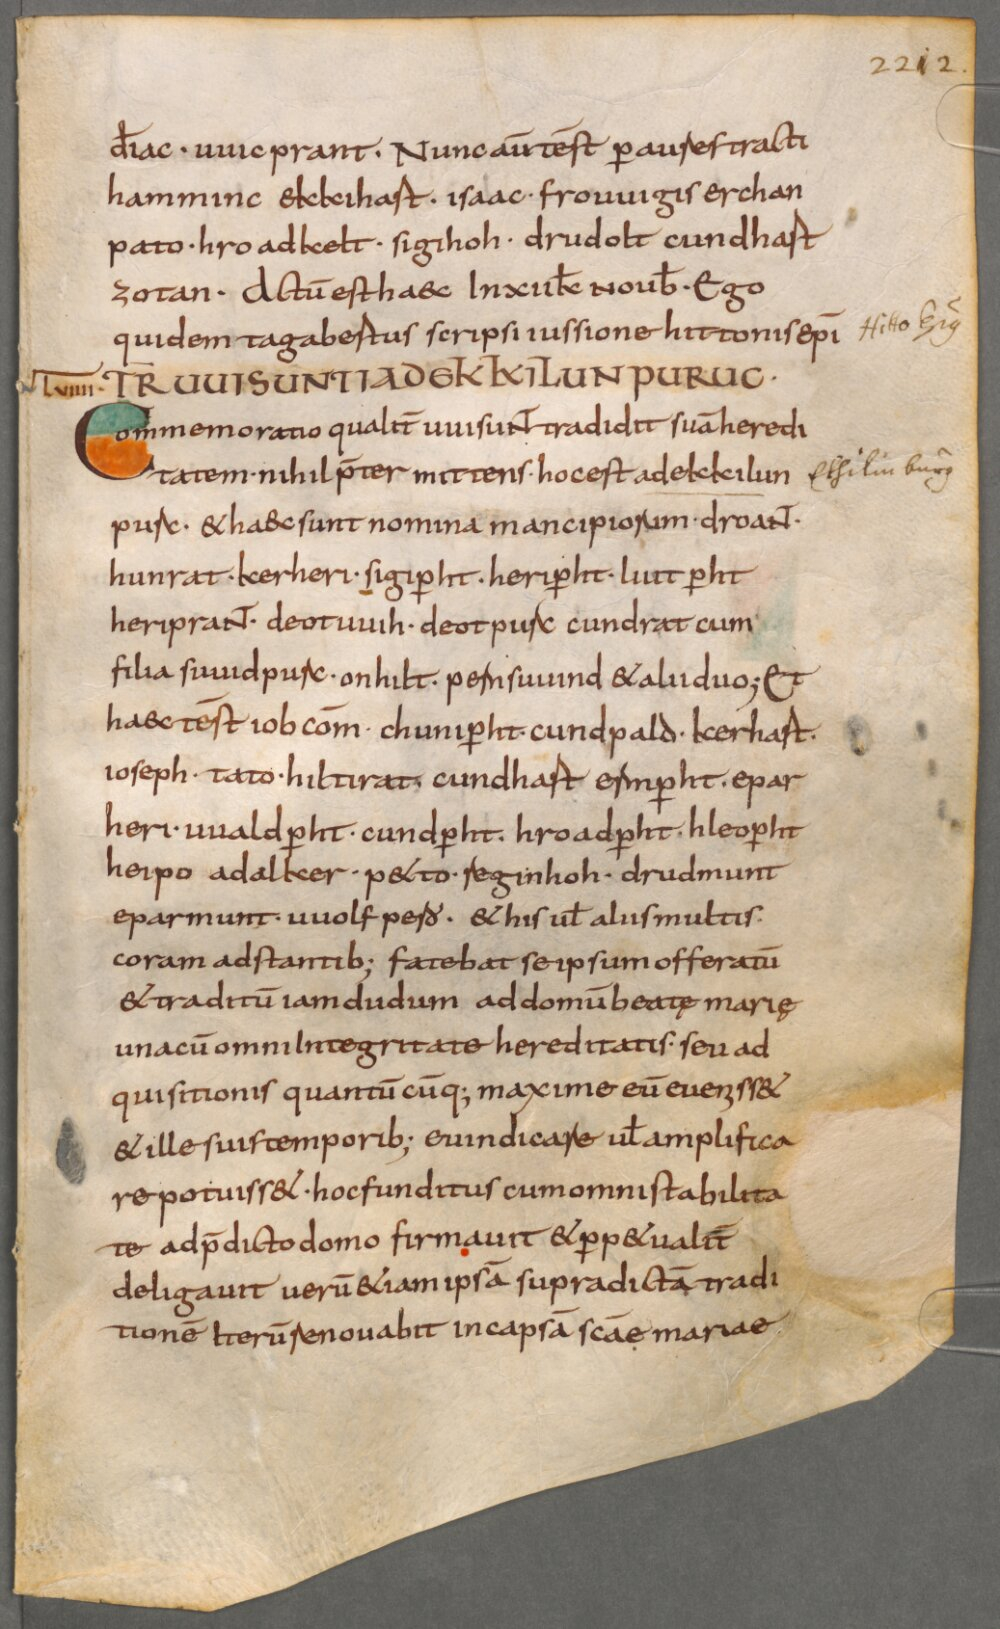 2212.
d̄iac · uuicprant · Nunc aūt̄est p̄ aures tracti
hamminc ekkihart · isaac · frouuigis erchan
pato · hroadkelt · sigihoh · drudolt cundhart
zotan · Actū est haec In xiik̄ nouēb · Ego
quidem tagabertus scripsi iussione hittonis ep̄i
Hitto
Lviiii · TR UUISUNTI AD EKKILUNPURUC ·
Commemoratio qualit̄ uuisuNT tradidit suā heredi
tatem · nihil p̄ter mittens · hoc est ad ekkilun
Ekhilinburg
purc · & haec sunt nomina mancipiorum · droaNT ·
hunrat · kerheri · sigip̄ht · herip̄ht · liut p̄ht
heripraNT · deotuuih · deotpurc cundrat cum
filia suuidpurc · onhilt · pernsuuind & alii duo; Et
haec t̄est iob cōm · chunip̄ht · cundpald · kerhart ·
ioseph · tato · hiltirat · cundhart ermp̄ht · epar
heri · uualdp̄ht · cundp̄ht · hroadp̄ht · hleop̄ht
heipo adalker · p&to · reginhoh · drudmunt
eparmunt · uuolfpero · & his ut̄ aliis multis ·
coram adstantib; fatebat se ipsum offeratū
& traditū iamdudum ad domū beatę marię
unacū omni Integritate hereditatis · seu ad
quisitionis quantūcūq; maxime eū euenss&
& ille suis temporib; euindicare ut̄ amplifica
re potuiss& · hoc funditus cum omni stabilita
te ad p̄dicto domo firmauit & p̄p&ualit̄
deligauit uerū &iam ipsā supradictā tradi
tionē Iterū renouabit in capsā scāe mariae